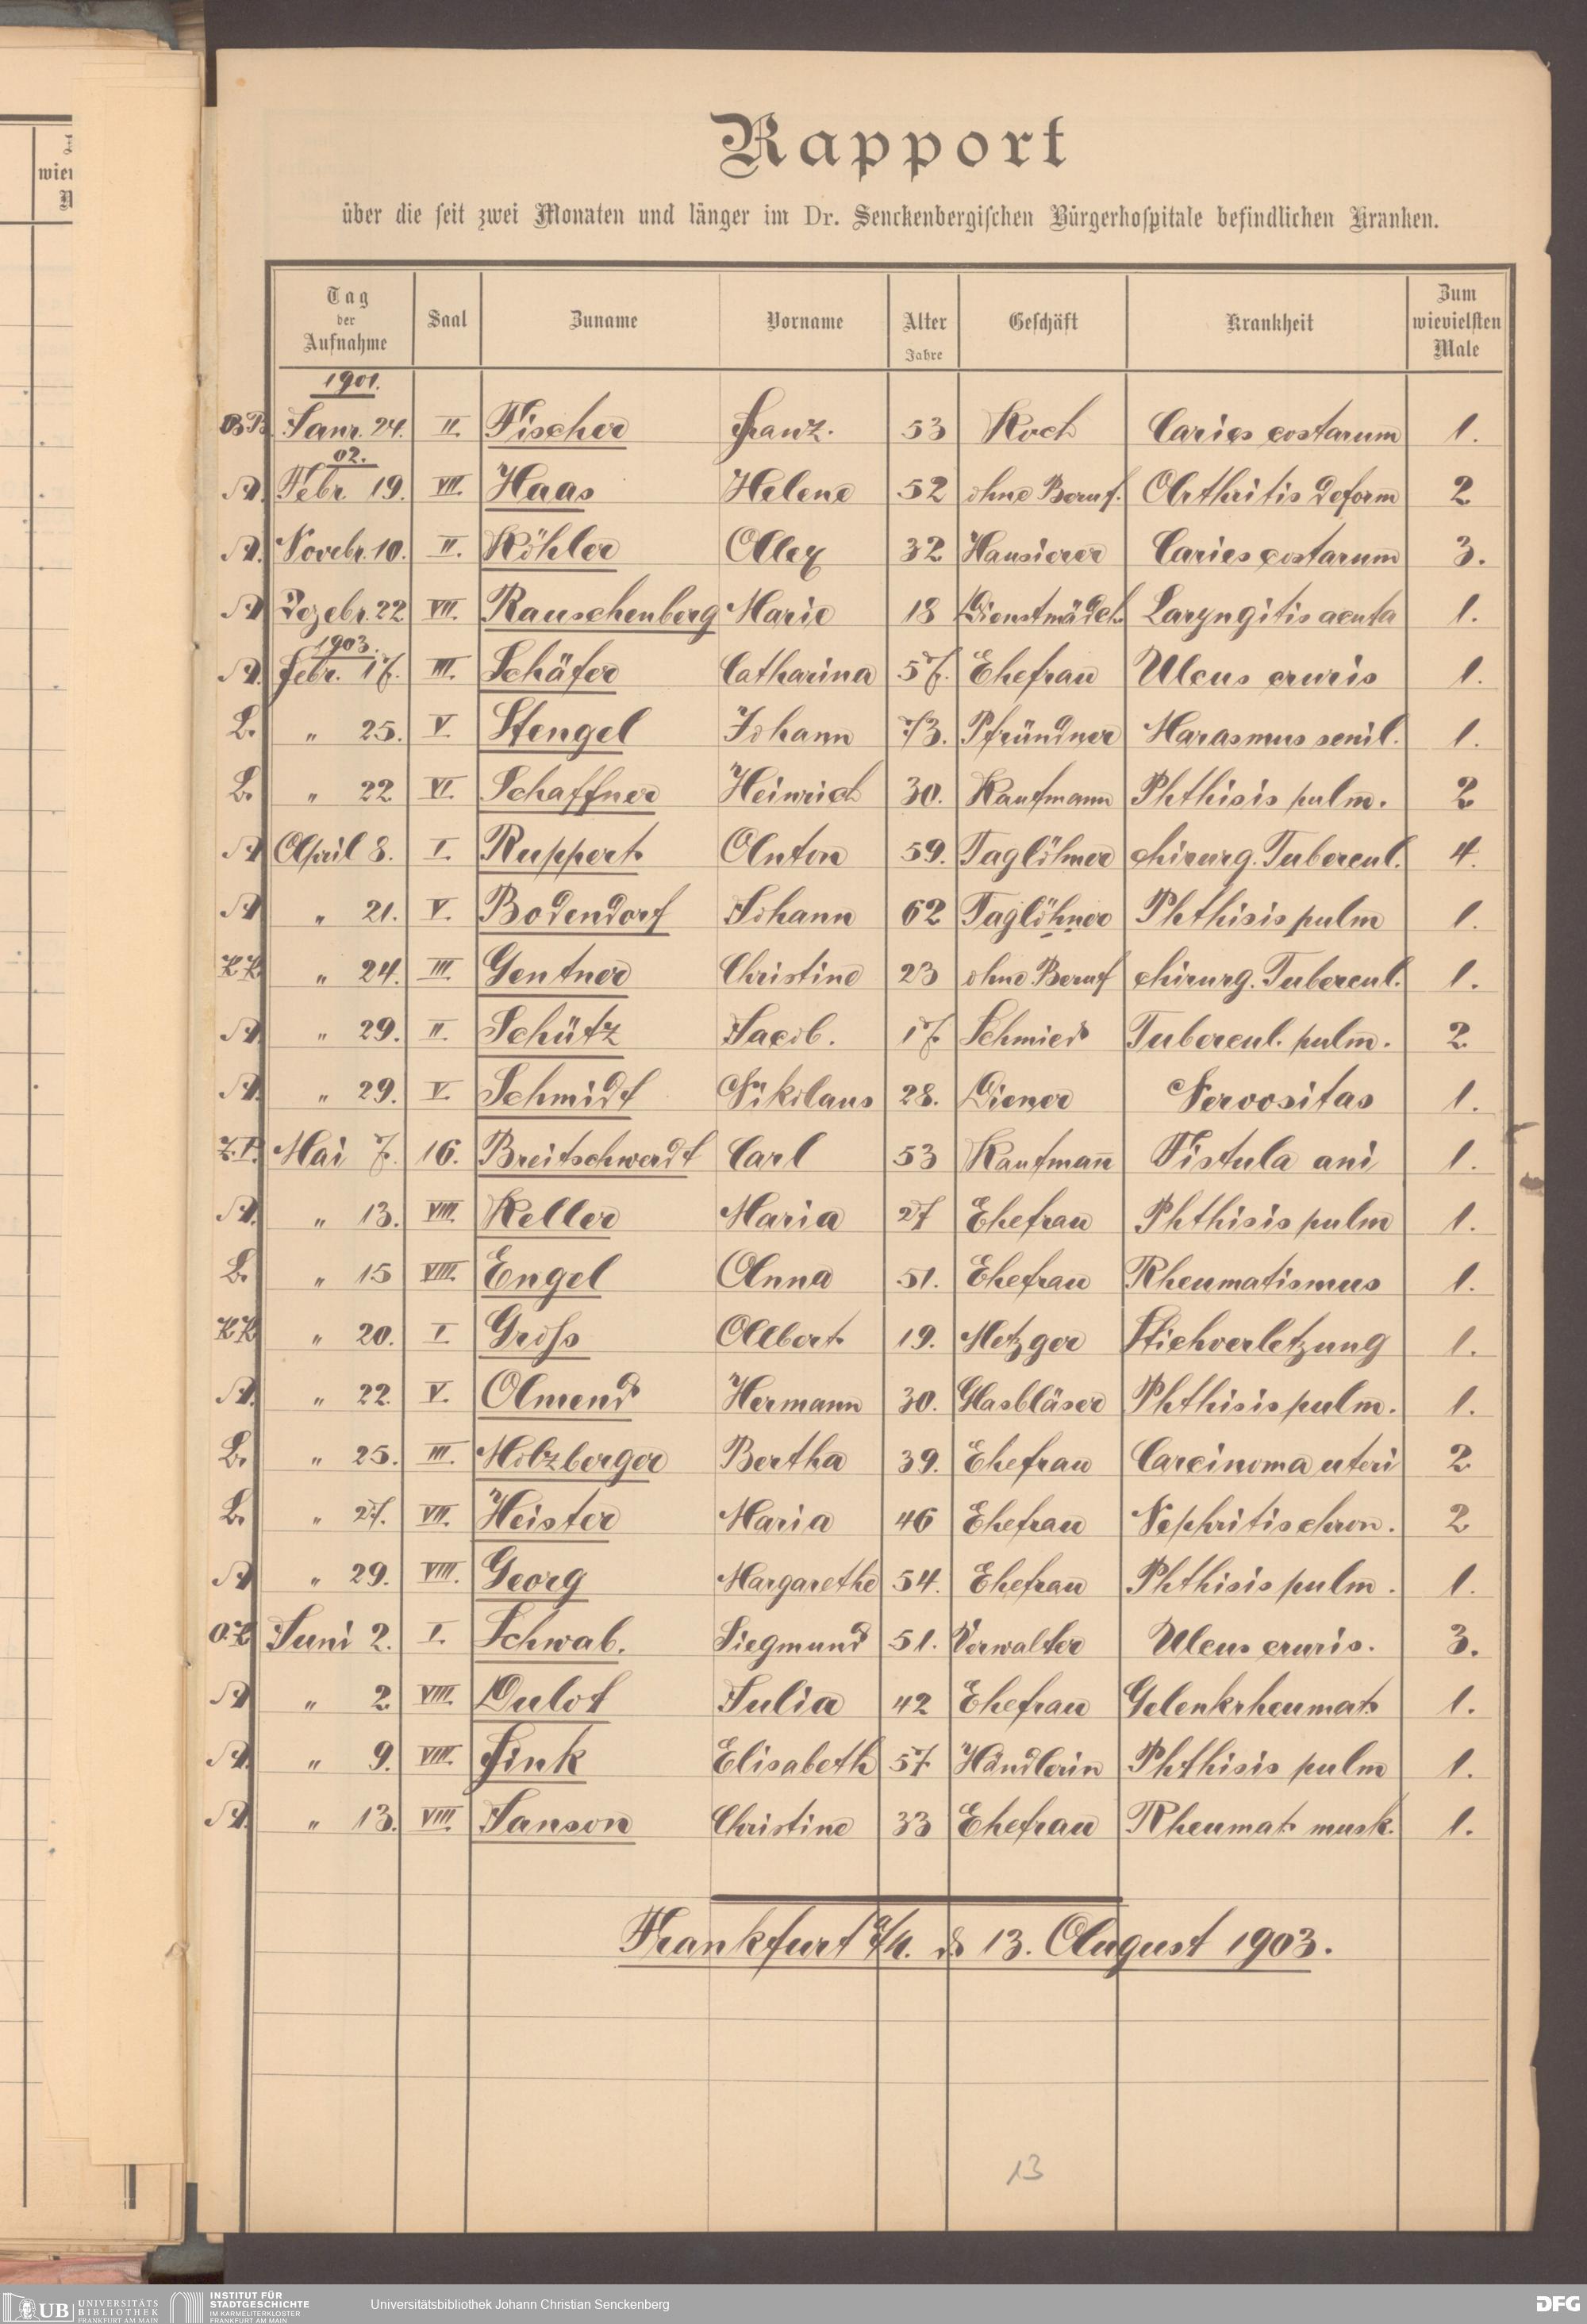 Rapport
über die seit zwei Monaten und länger im Dr. Senckenbergischen Bürgerhospitale befindlichen Kranken.
Tag der Aufnahme Saal Zuname Vorname Alter Jahre Geschäft Krankheit Zum wievielsten Male
1901.
BB. Janr. 24. II. Fischer Franz. 53 Koch Caries costarum 1.
02.
A. Febr. 19. VII. Haas Helene 52 ohne Beruf. Arthritis deform 2
A. Novebr. 10. II. Köhler Alex 32 Hausierer Caries costarum 3.
A Dezebr. 22 VII. Rauschenberg Marie 18 Dienstmädch. Laryngitis acuta 1.
1903.
A. Febr. 17. III. Schäfer Catharina 57. Ehefrau Ulcus cruris 1.
L. " 25. V. Stengel Johann 73. Pfründner Marasmus senil. 1.
L. " 22 VI. Schaffner Heinrich 30. Kaufmann Phthisis pulm. 2
A April 8. I. Ruppert. Anton 59. Taglöhner chirurg. Tubercul. 4.
A " 21. V. Bodendorf Johann 62 Taglöhner Phthisis pulm 1.
KK " 24. III. Gentner Christine 23 ohne Beruf chirurg. Tubercul. 1.
A. " 29. II. Schütz Jacob. 17. Schmied Tubercul. pulm. 2
A. " 29. V. Schmidt Nikolaus 28. Diener Nervositas 1.
Z.P. Mai 7. 16. Breitschwerdt Carl 53 Kaufmann Fistula ani 1.
A. " 13. VIII. Keller Maria 27 Ehefrau Phthisis pulm 1.
L. " 15 VIII. Engel Anna 51. Ehefrau Rheumatismus 1.
KK " 20. I. Groß Albert. 19. Metzger Stichverletzung 1.
A. " 22. V. Amend Hermann 30. Glasbläser Phthisis pulm. 1.
L. " 25. III. Holzberger Bertha 39. Ehefrau Carcinoma uteri 2
L. " 27. VII. Heister Maria 46 Ehefrau Nephritis chron. 2
A " 29. VIII. Georg Margarethe 54. Ehefrau Phthisis pulm. 1.
O.K Juni 2. I. Schwab. Siegmund 51. Verwalter Ulcus cruris. 3.
A " 2 VIII. Dulot Julia 42 Ehefrau Gelenkrheumat. 1.
A. " 9. VIII. Fink Elisabeth 57. Händlerin Phthisis pulm 1.
A. " 13. VIII. Janson Christine 33 Ehefrau Rheumat. musk. 1.
Frankfurt a/M. d 13. August 1903.
13
UB UNIVERSITÄTS BIBLIOTHEK FRANKFURT AM MAIN
INSTITUT FÜR STADTGESCHICHTE IM KARMELITERKLOSTER FRANKFURT AM MAIN
Universitätsbibliothek Johann Christian Senckenberg
DFG